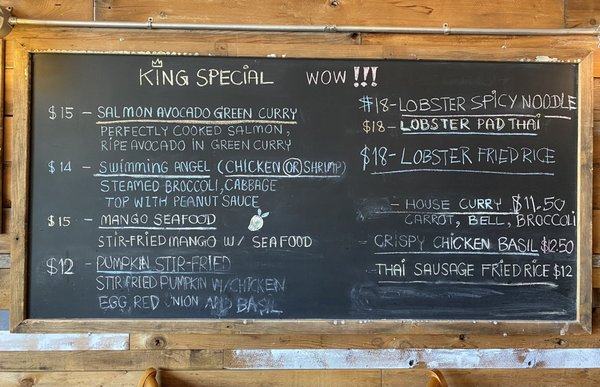 KING SPECIAL WOW!!!
$15 - SALMON AVOCADO GREEN CURRY
PERFECTLY COOKED SALMON,
RIPE AVOCADO IN GREEN CURRY
$14 - SWIMMING ANGEL (CHICKEN OR SHRIMP)
STEAMED BROCCOLI, CABBAGE
TOP WITH PEANUT SAUCE
$15 - MANGO SEAFOOD
STIR-FRIED MANGO W/ SEAFOOD
$12 - PUMPKIN STIR-FRIED
STIR FRIED PUMPKIN W/ CHICKEN
EGG, RED UNION AND BASIL
$18 - LOBSTER SPICY NOODLE
$18 - LOBSTER PAD THAI
$18 - LOBSTER FRIED RICE
- HOUSE CURRY $11.50
CARROT, BELL, BROCCOLI
- CRISPY CHICKEN BASIL $12.50
- THAI SAUSAGE FRIED RICE $12